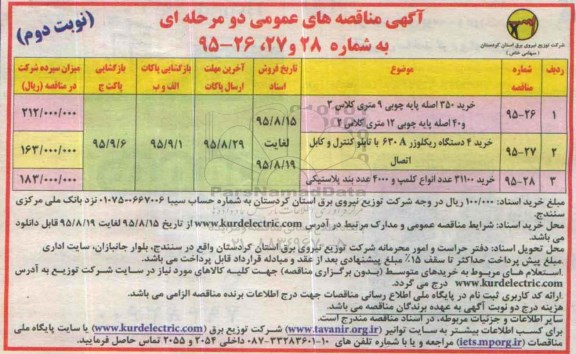 آگهی مناقصه های عمومی دو مرحله ای
به شماره ۲۸ و۲۷، ۲۶-۹۵
(نوبت دوم)
شرکت توزیع نیروی برق استان کردستان
(سهامی خاص)
ردیف
شماره مناقصه
موضوع
تاریخ فروش اسناد
آخرین مهلت ارسال پاکات
بازگشایی پاکات الف و ب
بازگشایی پاکت ج
میزان سپرده شرکت در مناقصه (ریال)
۱
۹۵-۲۶
خرید ۳۵۰ اصله پایه چوبی ۹ متری کلاس ۳
و۴۰ اصله پایه چوبی ۱۲ متری کلاس ۴
۲۱۲/۰۰۰/۰۰۰
۲
۹۵-۲۷
خرید ۴ دستگاه ریکلوزر ۶۳۰ A با تابلو کنترل و کابل
اتصال
۱۶۳/۰۰۰/۰۰۰
۳
۹۵-۲۸
خرید ۳۱۱۰۰ عدد انواع کلمپ و ۴۰۰۰ عدد بند پلاستیکی
۱۸۳/۰۰۰/۰۰۰
۹۵/۸/۱۵
لغایت
۹۵/۸/۱۹
۹۵/۸/۲۹
۹۵/۹/۱
۹۵/۹/۶
مبلغ خرید اسناد: ۱۰۰/۰۰۰ ریال در وجه شرکت توزیع نیروی برق استان کردستان به شماره حساب سیبا ۰۱۰۷۵۰۰۶۶۷۰۰۶ نزد بانک ملی مرکزی
سنندج.
محل خرید اسناد: شرایط مناقصه عمومی و مدارک مرتبط در آدرس www.kurdelectric.com از تاریخ ۹۵/۸/۱۵ لغایت ۹۵/۸/۱۹ قابل دانلود
می باشد.
محل تحویل اسناد: دفتر حراست و امور محرمانه شرکت توزیع نیروی برق استان کردستان واقع در سنندج، بلوار جانبازان، سایت اداری
.مبلغ پیش پرداخت حداکثر تا سقف ۱۵٪ مبلغ پیشنهادی بعد از عقد و مبادله قرارداد قابل پرداخت می باشد.
.استعلام های مربوط به خریدهای متوسط (بدون برگزاری مناقصه) جهت کلیه کالاهای مورد نیاز در سایت شرکت توزیع به آدرس
www.kurdelectric.com درج می گردد.
.ارائه کد کاربری ثبت نام در پایگاه ملی اطلاع رسانی مناقصات جهت درج اطلاعات برنده مناقصه الزامی می باشد.
هزینه درج دو نوبت آگهی به عهده برندگان مناقصه می باشد.
سایر اطلاعات و جزئیات مربوطه، در اسناد مناقصه مندرج است.
برای کسب اطلاعات بیشتر به سایت توانیر (www.tavanir.org.ir) شرکت توزیع برق (www.kurdelectric.com) یا سایت پایگاه ملی
مناقصات (iets.mporg.ir) مراجعه و یا با شماره تلفن های ۱۰-۳۳۲۸۳۶۰۱-۰۸۷ داخلی ۲۰۵۴ و ۲۰۵۵ تماس حاصل فرمایید.
ParsNamadData